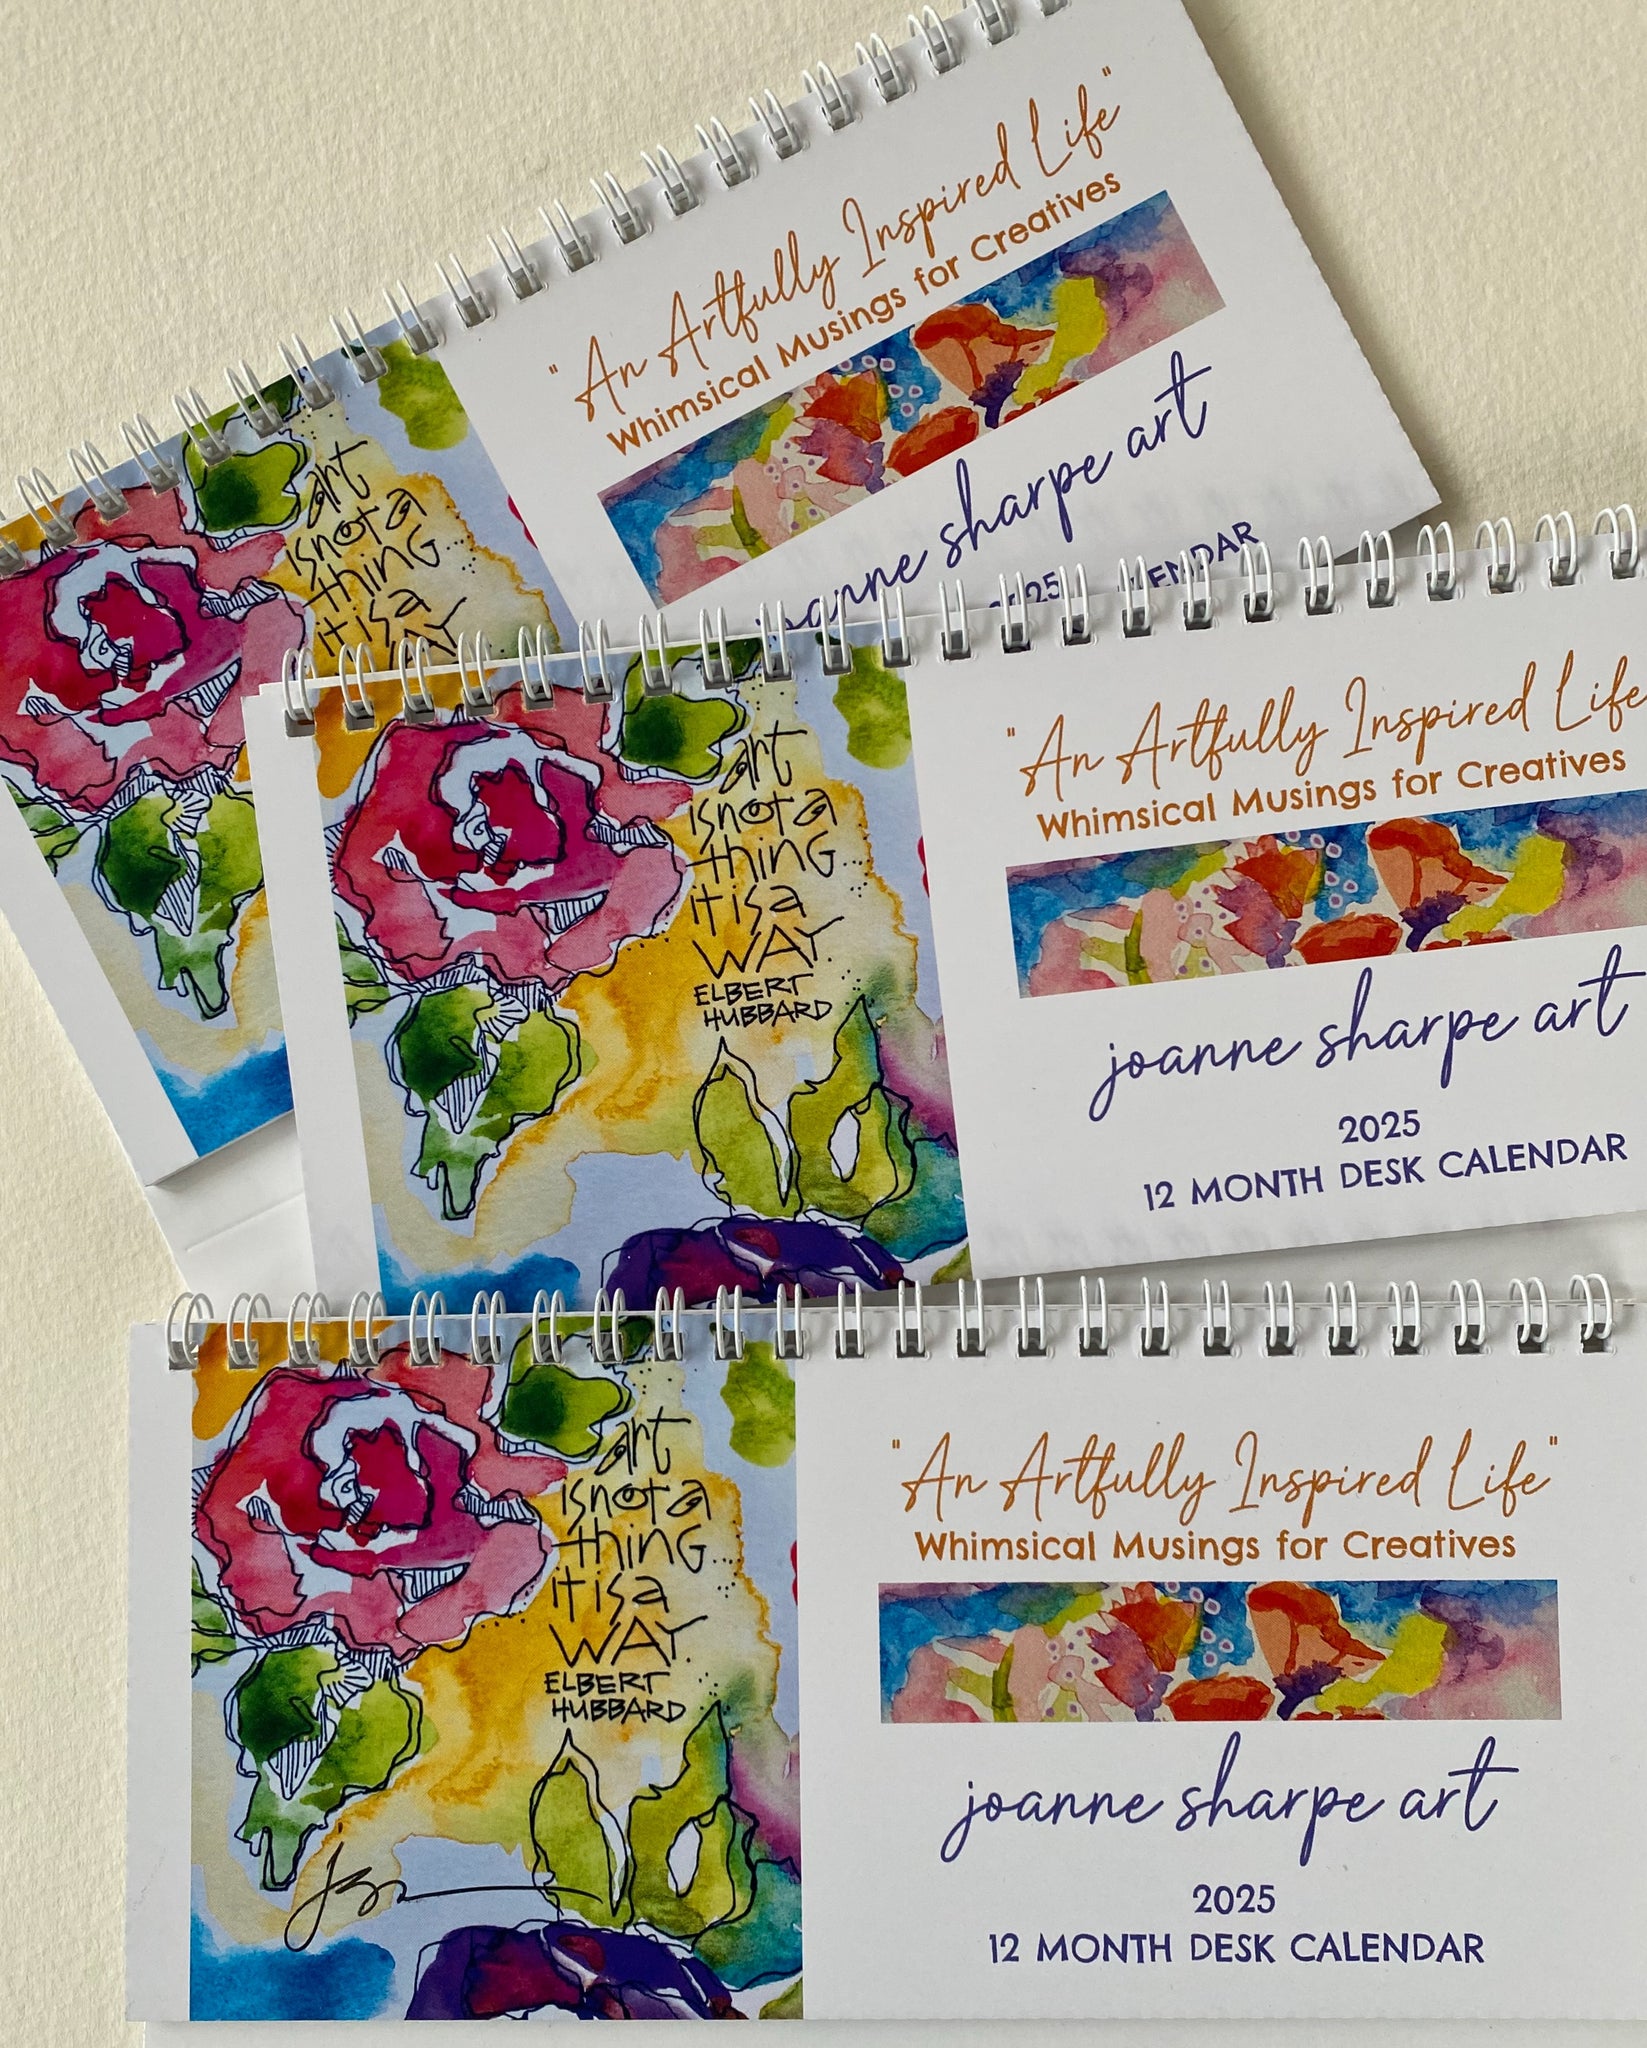 "An Artfully Inspired Life"
Whimsical Musings for Creatives
joanne sharpe art
2025 CALENDAR
art
is not a
thing
it is a
WAY
"An Artfully Inspired Life
Whimsical Musings for Creatives
joanne sharpe art
2025
12 MONTH DESK CALENDAR
art
is not a
thing...
it is a
WAY.
ELBERT
HUBBARD
"An Artfully Inspired Life"
Whimsical Musings for Creatives
joanne sharpe art
2025
12 MONTH DESK CALENDAR
art
is not a
thing...
it is a
WAY.
ELBERT
HUBBARD